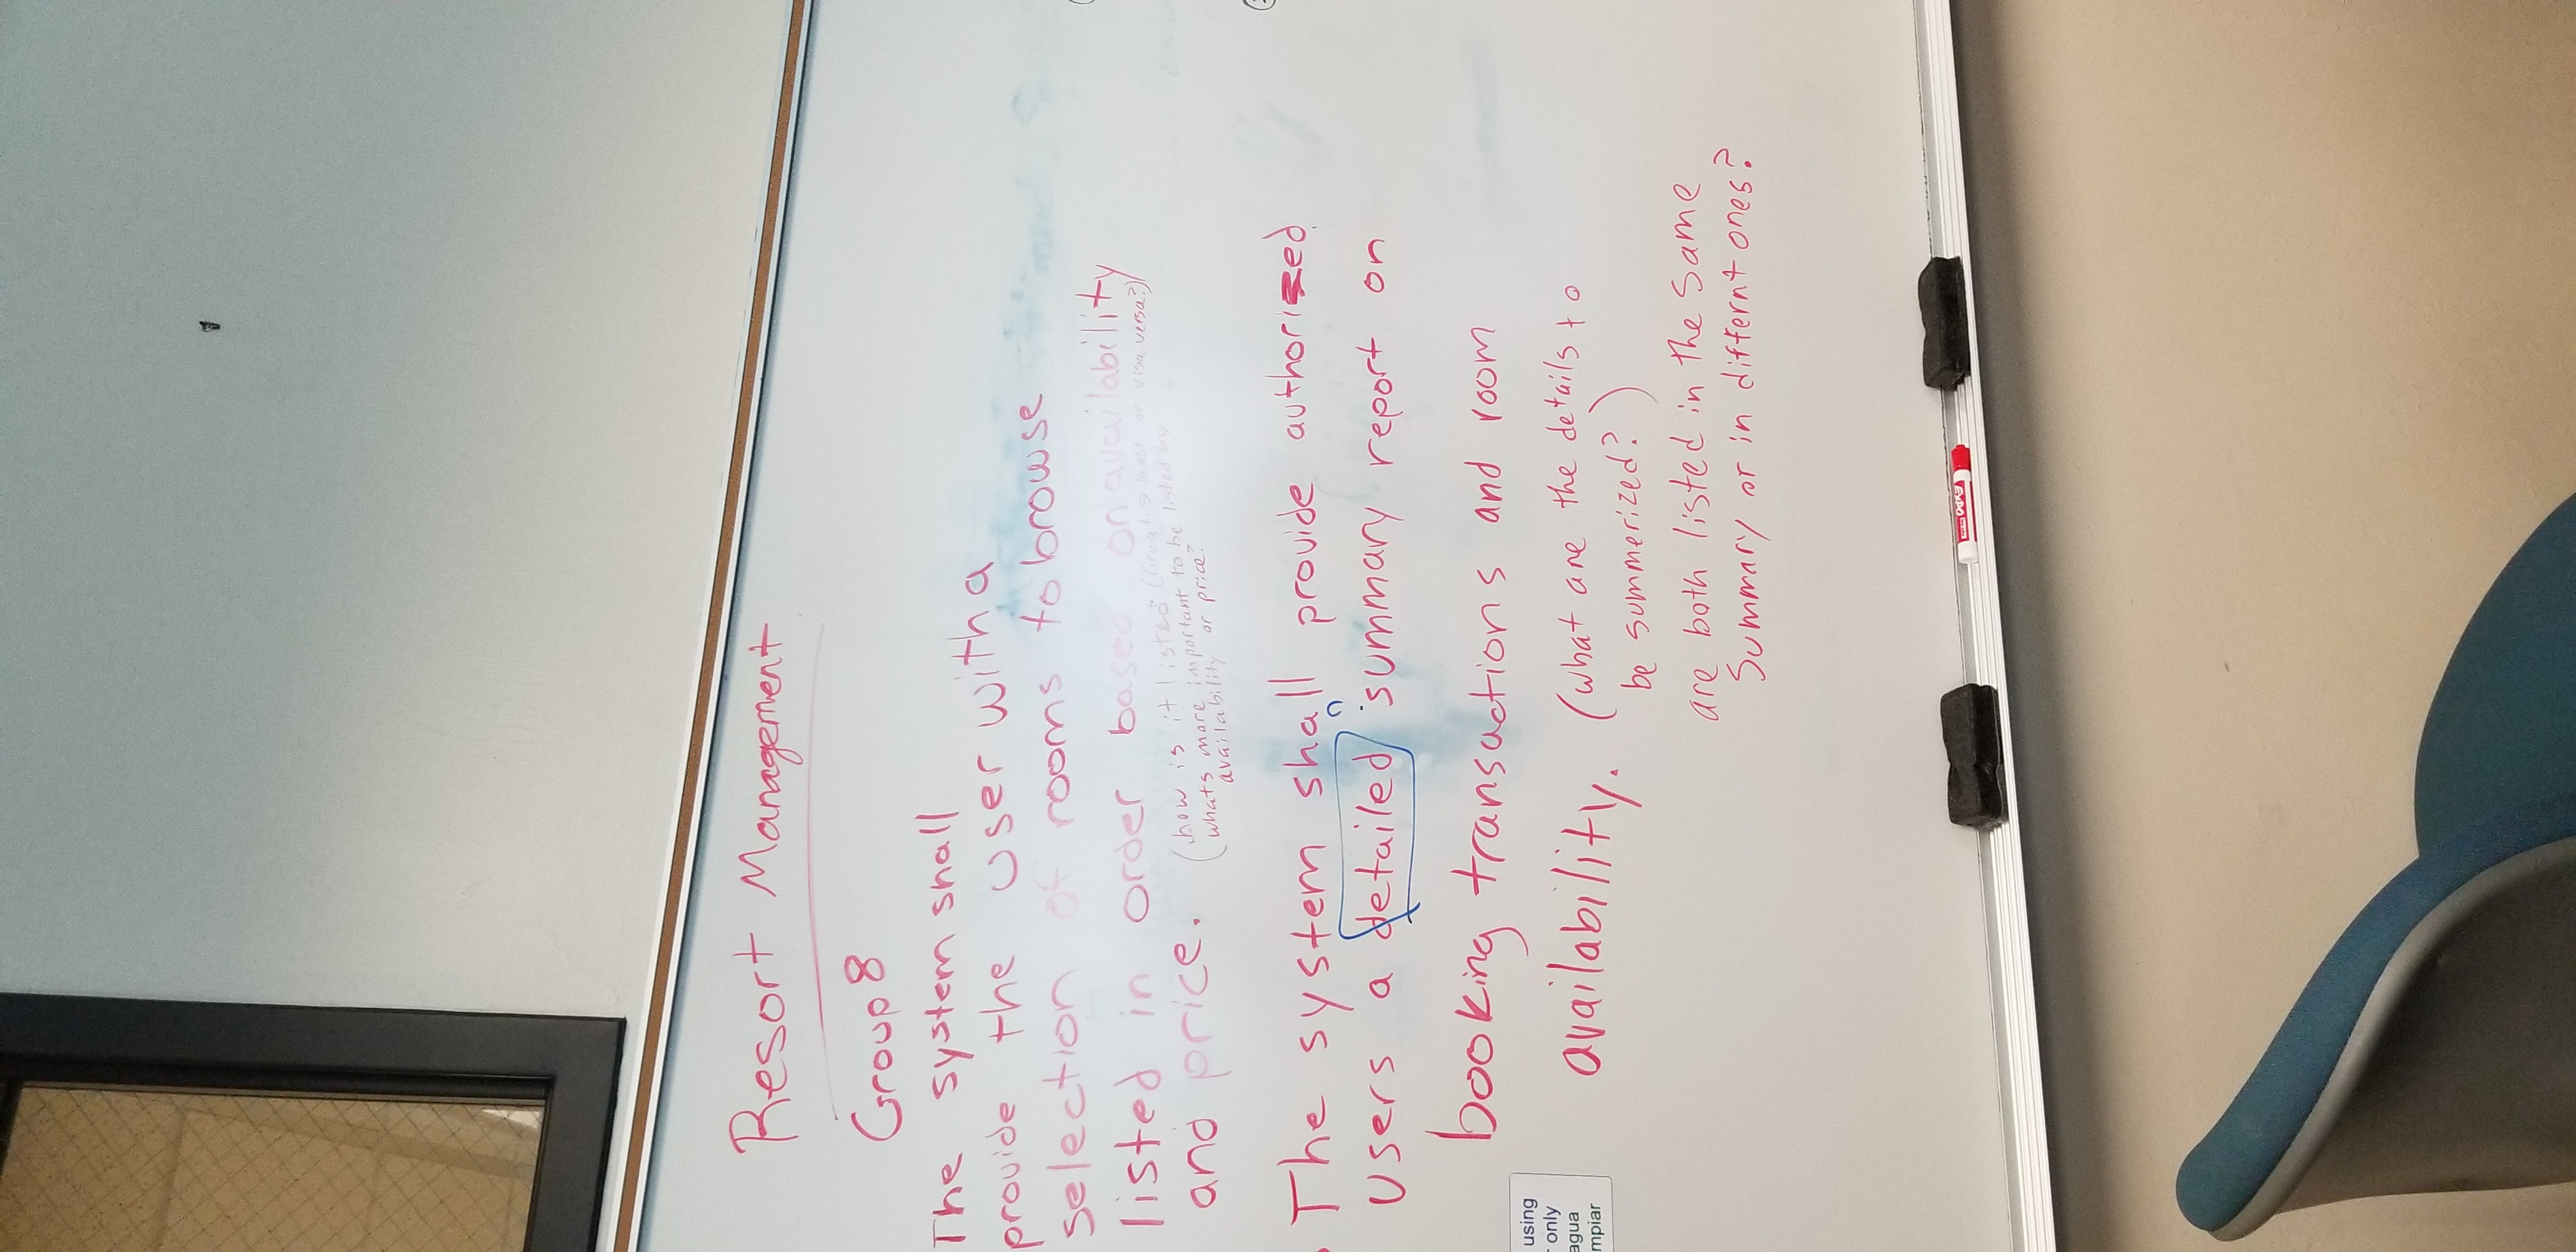 Resort Management
Group 8
The system shall
provide the user with a
selection of rooms to browse
listed in order based on availability
and price.
(how is it listed (Great → least or visa versa?)
whats more important to be listed by
availability or price?
The system shall provide authorized
users a detailed ? summary report on
booking transactions and room
availability.
(what are the details to
be summerized?)
are both listed in the same
Summary or in differnt ones?
using
only
agua
mpiar
EXPO